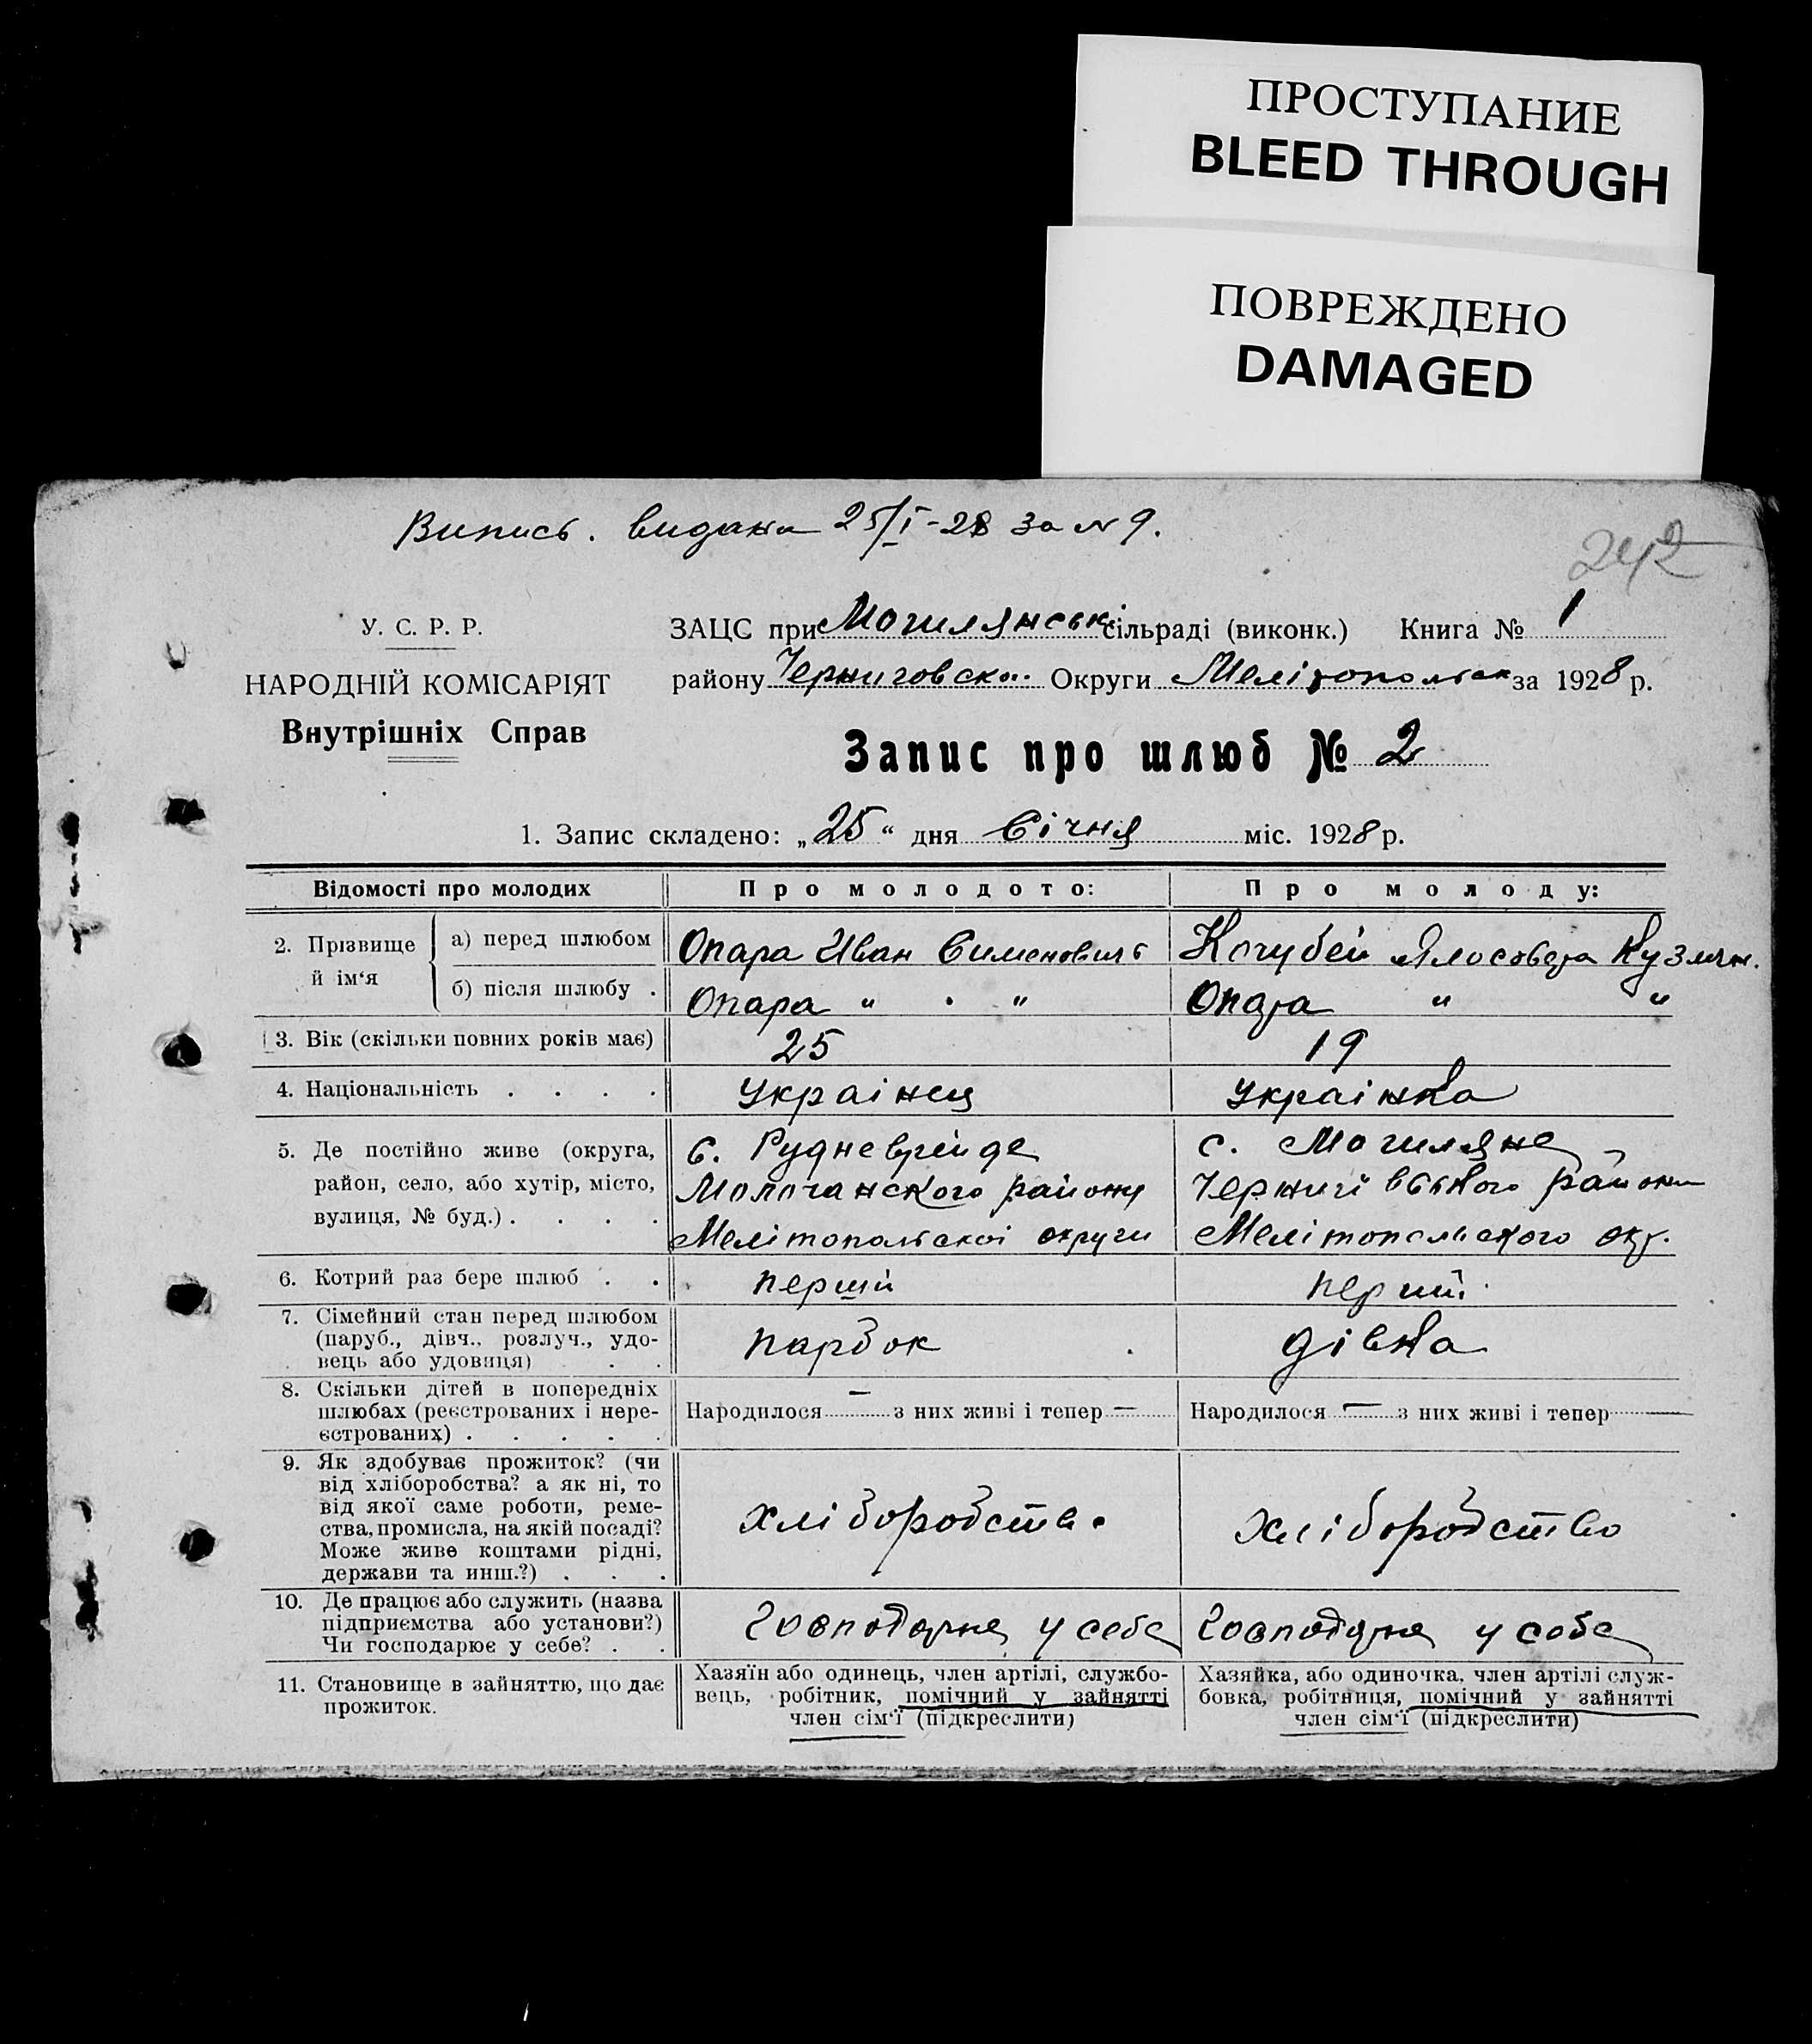 ПРОСТУПАНИЕ
BLEED THROUGH
ПОВРЕЖДЕНО
DAMAGED
Випись. видана 25/I-28 за № 9.
242
У. С. Р. Р.
НАРОДНІЙ КОМІСАРІЯТ
Внутрішніх Справ
ЗАЦС при Могилянськ. сільраді (виконк.) Книга № 1
району Черниговско.. Округи Мелітопольск за 1928 р.
Запис про шлюб № 2
1. Запис складено: „25“ дня Січня міс. 1928 р.
Відомості про молодих
Про молодото:
Про молоду:
2. Прізвище й ім‘я
а) перед шлюбом
Опара Иван Сименович
Кочубей Кузмин.
б) після шлюбу .
Опара " . "
Опара " "
3. Вік (скільки повних років має)
25
19
4. Національність . . . .
Украінец
Украінка
5. Де постійно живе (округа,
район, село, або хутір, місто,
вулиця, № буд.) . . . .
с. Рудневрейде
Молочанского району
Мелітопольскоі округи
с. Могиляне
Чернигівського району
Мелітопольского окр.
6. Котрий раз бере шлюб . .
перший
перший.
7. Сімейний стан перед шлюбом
(паруб., дівч., розлуч., удо-
вець або удовиця) . .
парбок
дівка
8. Скільки дітей в попередніх
шлюбах (реєстрованих і нере-
єстрованих) . . . . .
Народилося — з них живі і тепер —
Народилося — з них живі і тепер —
9. Як здобуває прожиток? (чи
від хліборобства? а як ні, то
від якої саме роботи, реме-
ства, промисла, на якій посаді?
Може живе коштами рідні,
держави та инш.?) . . .
хліборобство
хліборобство
10. Де працює або служить (назва
підприємства або установи?)
Чи господарює у себе? . .
Господарка у себе
Господарка у себе
11. Становище в зайняттю, що дає
прожиток.
Хазяїн або одинець, член артілі, службо-
вець, робітник, помічний у зайнятті
член сім‘ї (підкреслити)
Хазяйка, або одиночка, член артілі служ-
бовка, робітниця, помічний у зайнятті
член сім‘ї (підкреслити)